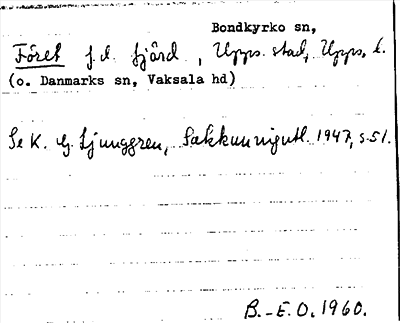 Bondkyrko sn,
Föret f.d. fjärd, Upps. stad, Upps. l.
(o. Danmarks sn, Vaksala hd)
Se K. G. Ljunggren, Sakkunnigutl. 1947, s. 51.
B.-E.O. 1960.